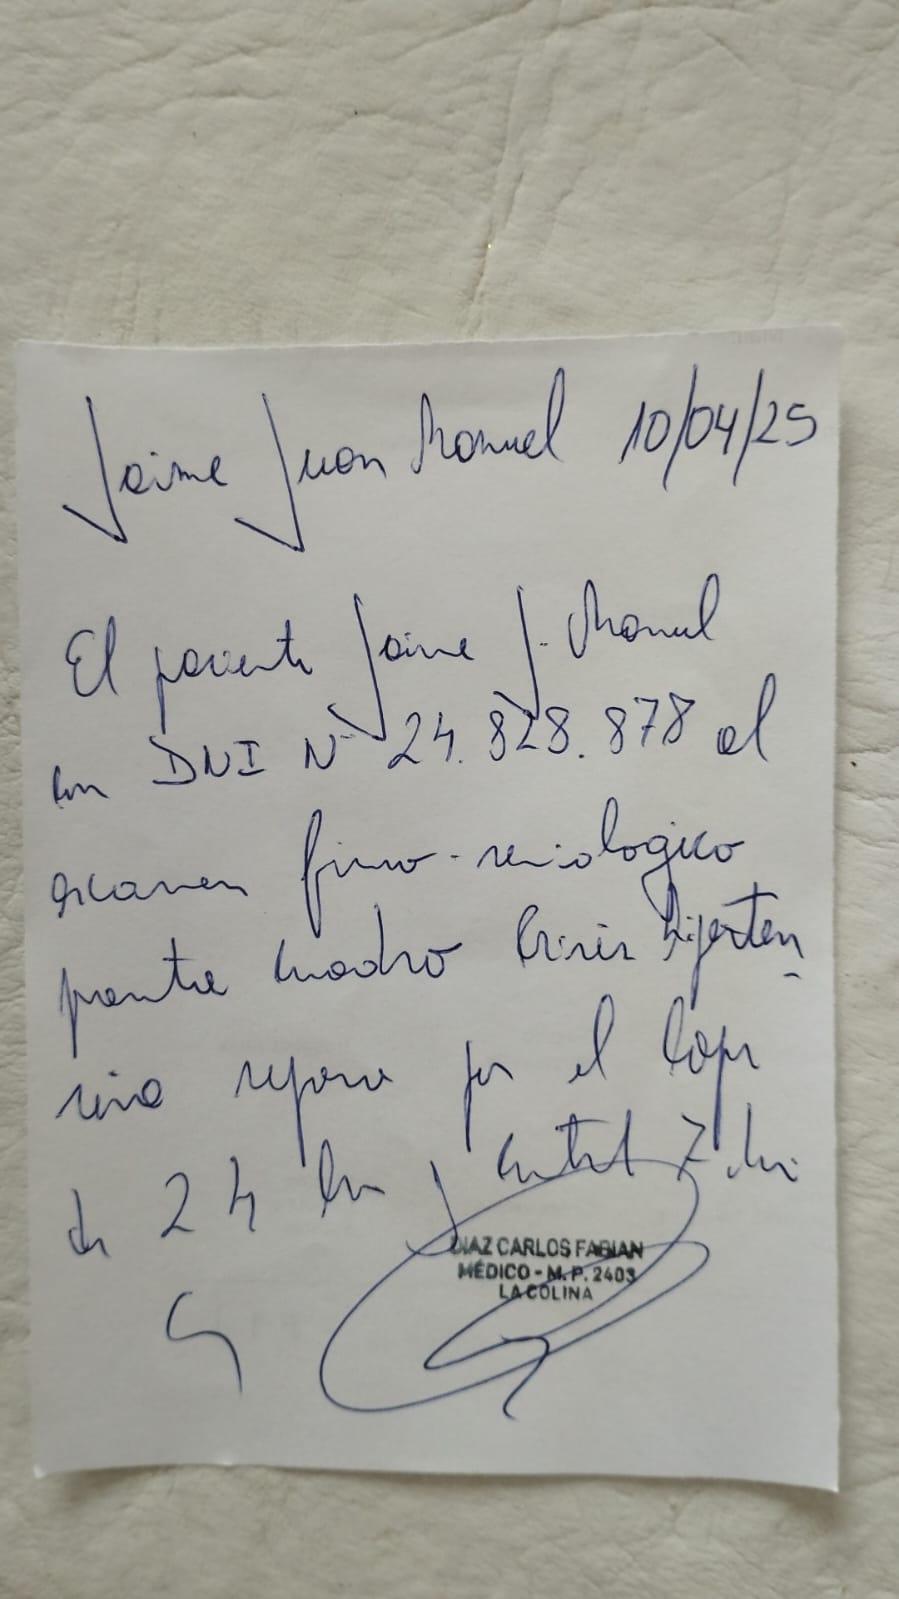 Jaime Juan Manuel 10/04/25
El paciente Jaime J. Manuel
con DNI N° 24.828.878 al
examen fisico-semiologico
presenta cuadro Crisis hiperten
siva reposo por el lapso
de 24 hs, control 7 hs.
DIAZ CARLOS FABIAN
MÉDICO - M. P. 2403
LA COLINA